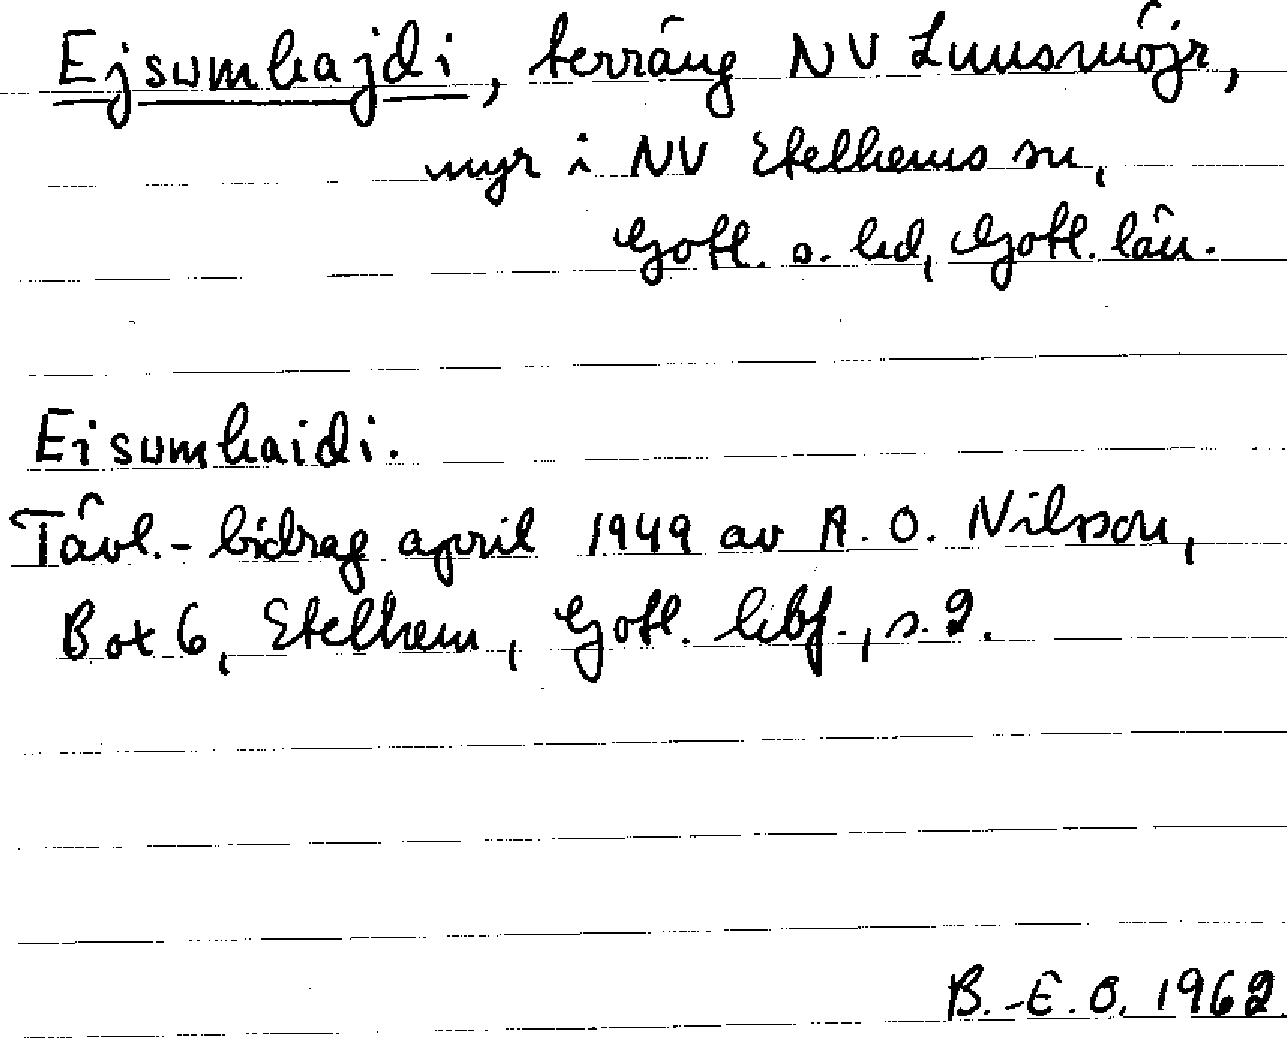 Ejsumhajdi, terräng NV Lunsmöjr,
myr i NV Etelhems sn,
Gotl. s. hd, Gotl. län.
Eisumhaidi.
Tävl.-bidrag april 1949 av A. O. Nilsson,
Box 6, Etelhem, Gotl. hbf., s. 2.
B.-E.O. 1962